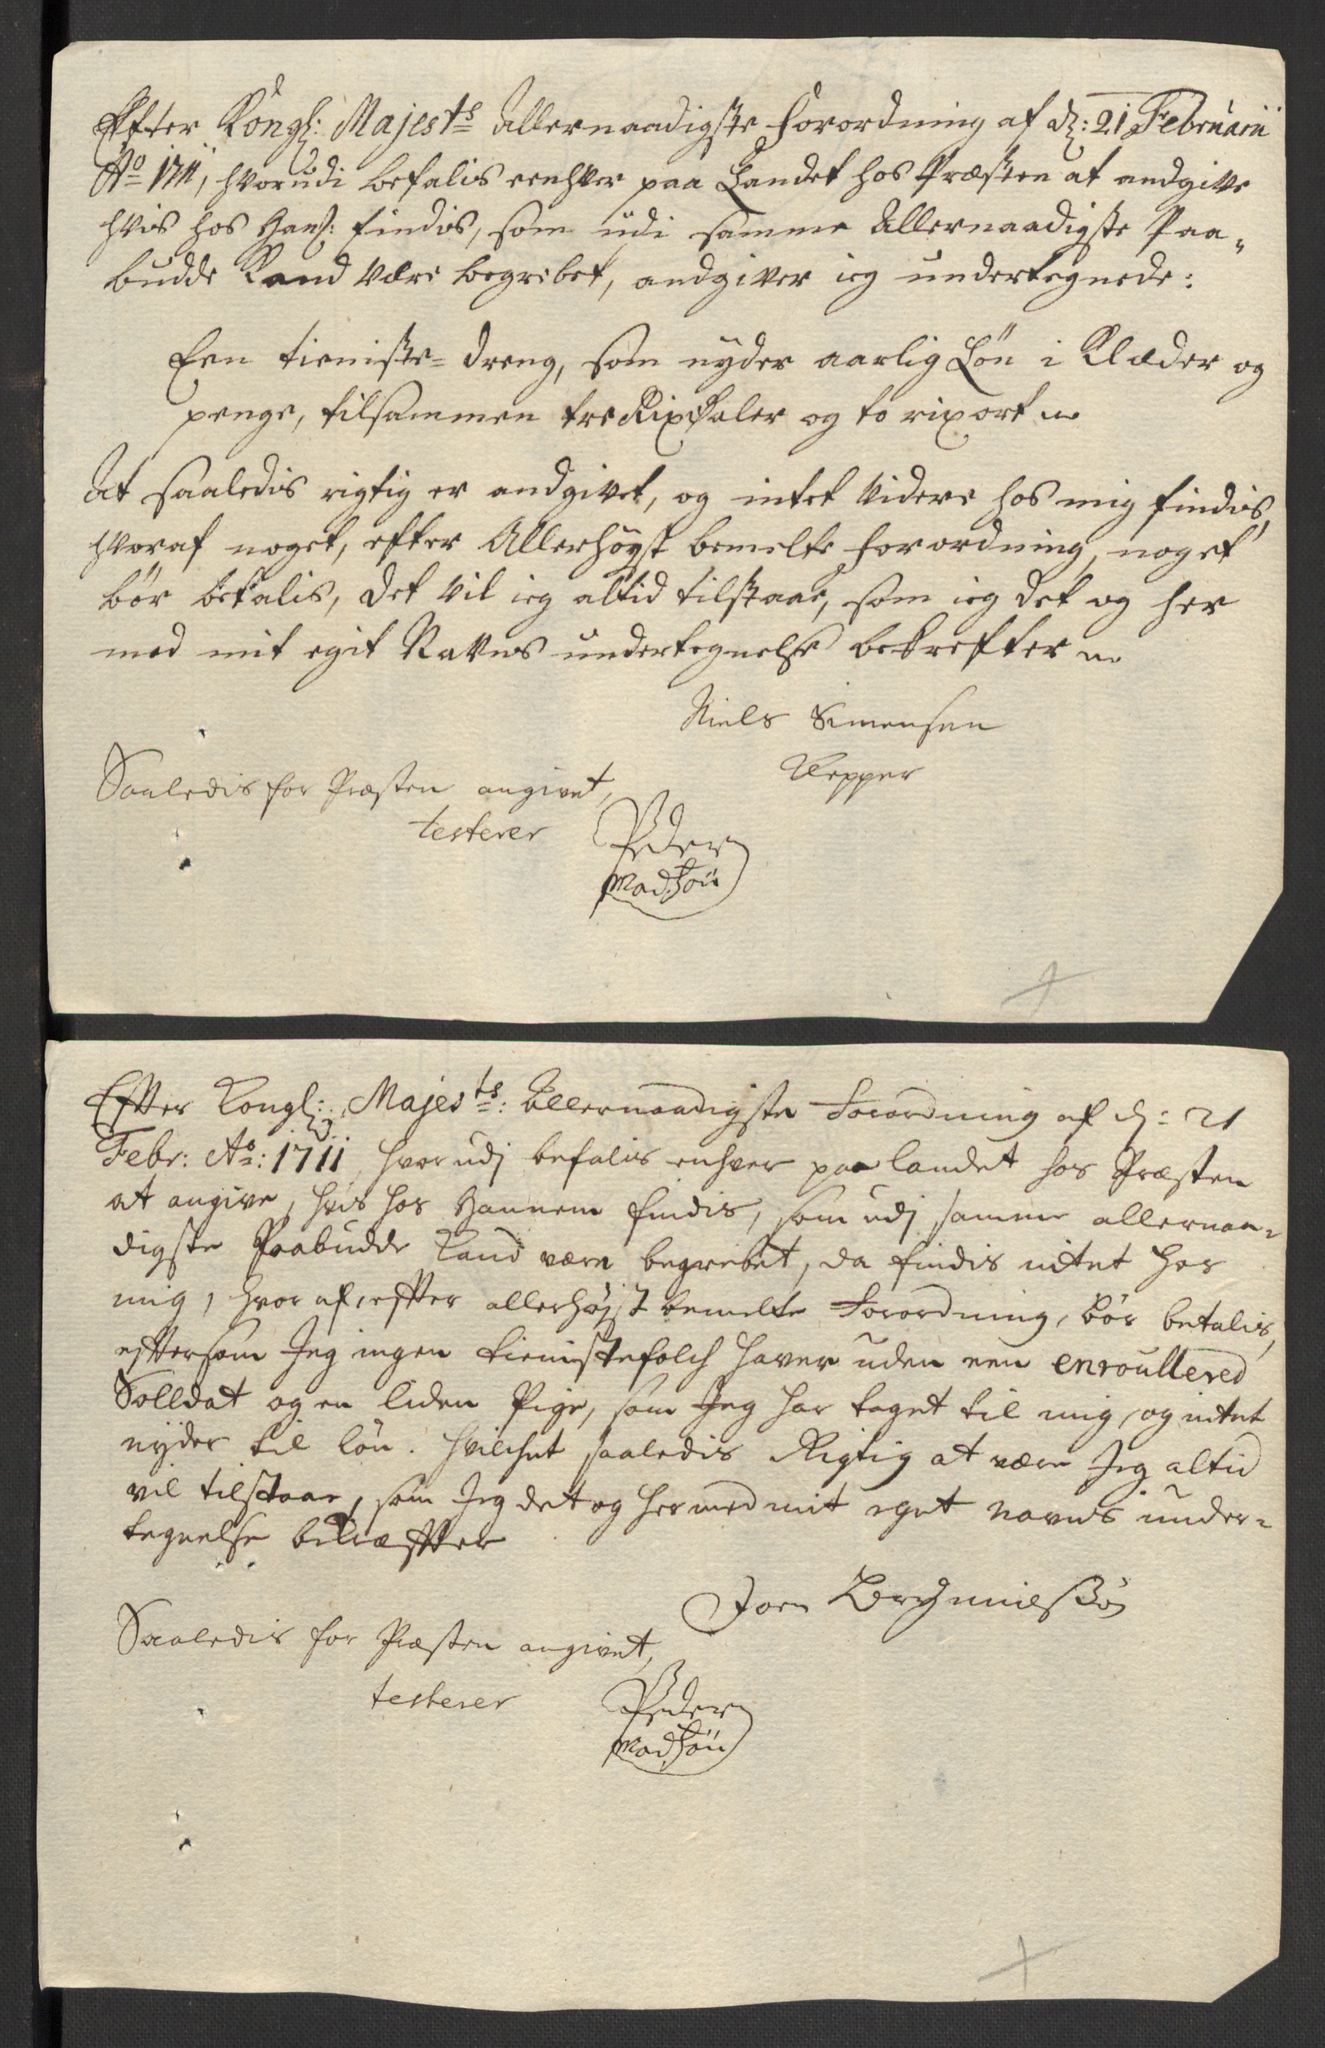 Efter Kongl: Majest:s Allernaadigste Forordning af d: 21 Februarii
Ao 1711, hvorudi befalis eenhver paa Landet hos Præsten at andgive
hvis hos Hans: findis, som udi samme Allernaadigste Paa-
budde Kand være begrebet, andgiver ieg undertegnede:
Een tieniste-dreng, som nyder aarlig Løn i Klæder og
penge, tilsammen tre Rixdaler og to rixort
At saaledis rigtig er andgivet, og intet videre hos mig findis,
hvoraf noget, efter Allerhøyst bemelte forordning, noget
bør betalis, det vil ieg altid tilstaae, som ieg det og her
med mit egit Navns undertegnelse bekrefter
Niels Simensen
Klepper
Saaledis for Præsten angivet,
testerer
Peder
Madsøn
Effter Kongl: Majes:ts: Allernaadigste Forordning af d: 21
Febr: Ao: 1711, hvor udj befalis enhver paa landet hos Præsten
at angive, hvis hos Hannem findis, som udj samme allernaa-
digste Paabudde Kand være begrebet, da findis intet hos
mig, hvor af, effter allerhøjst bemelte Forordning, bör betalis,
efftersom Jeg ingen tienistefolch haver uden een enroullered
Solldat og en liden Pige, som Jeg har taget til mig, og intet
nyder til løn. hvilchet saaledis Rigtig at være Jeg altid
vil tilstaae, som Jeg det og her med mit eget navns under-
tegnelse bekræffter
Joen
Saaledis for Præsten angivet,
testerer
Peder
Madsøn